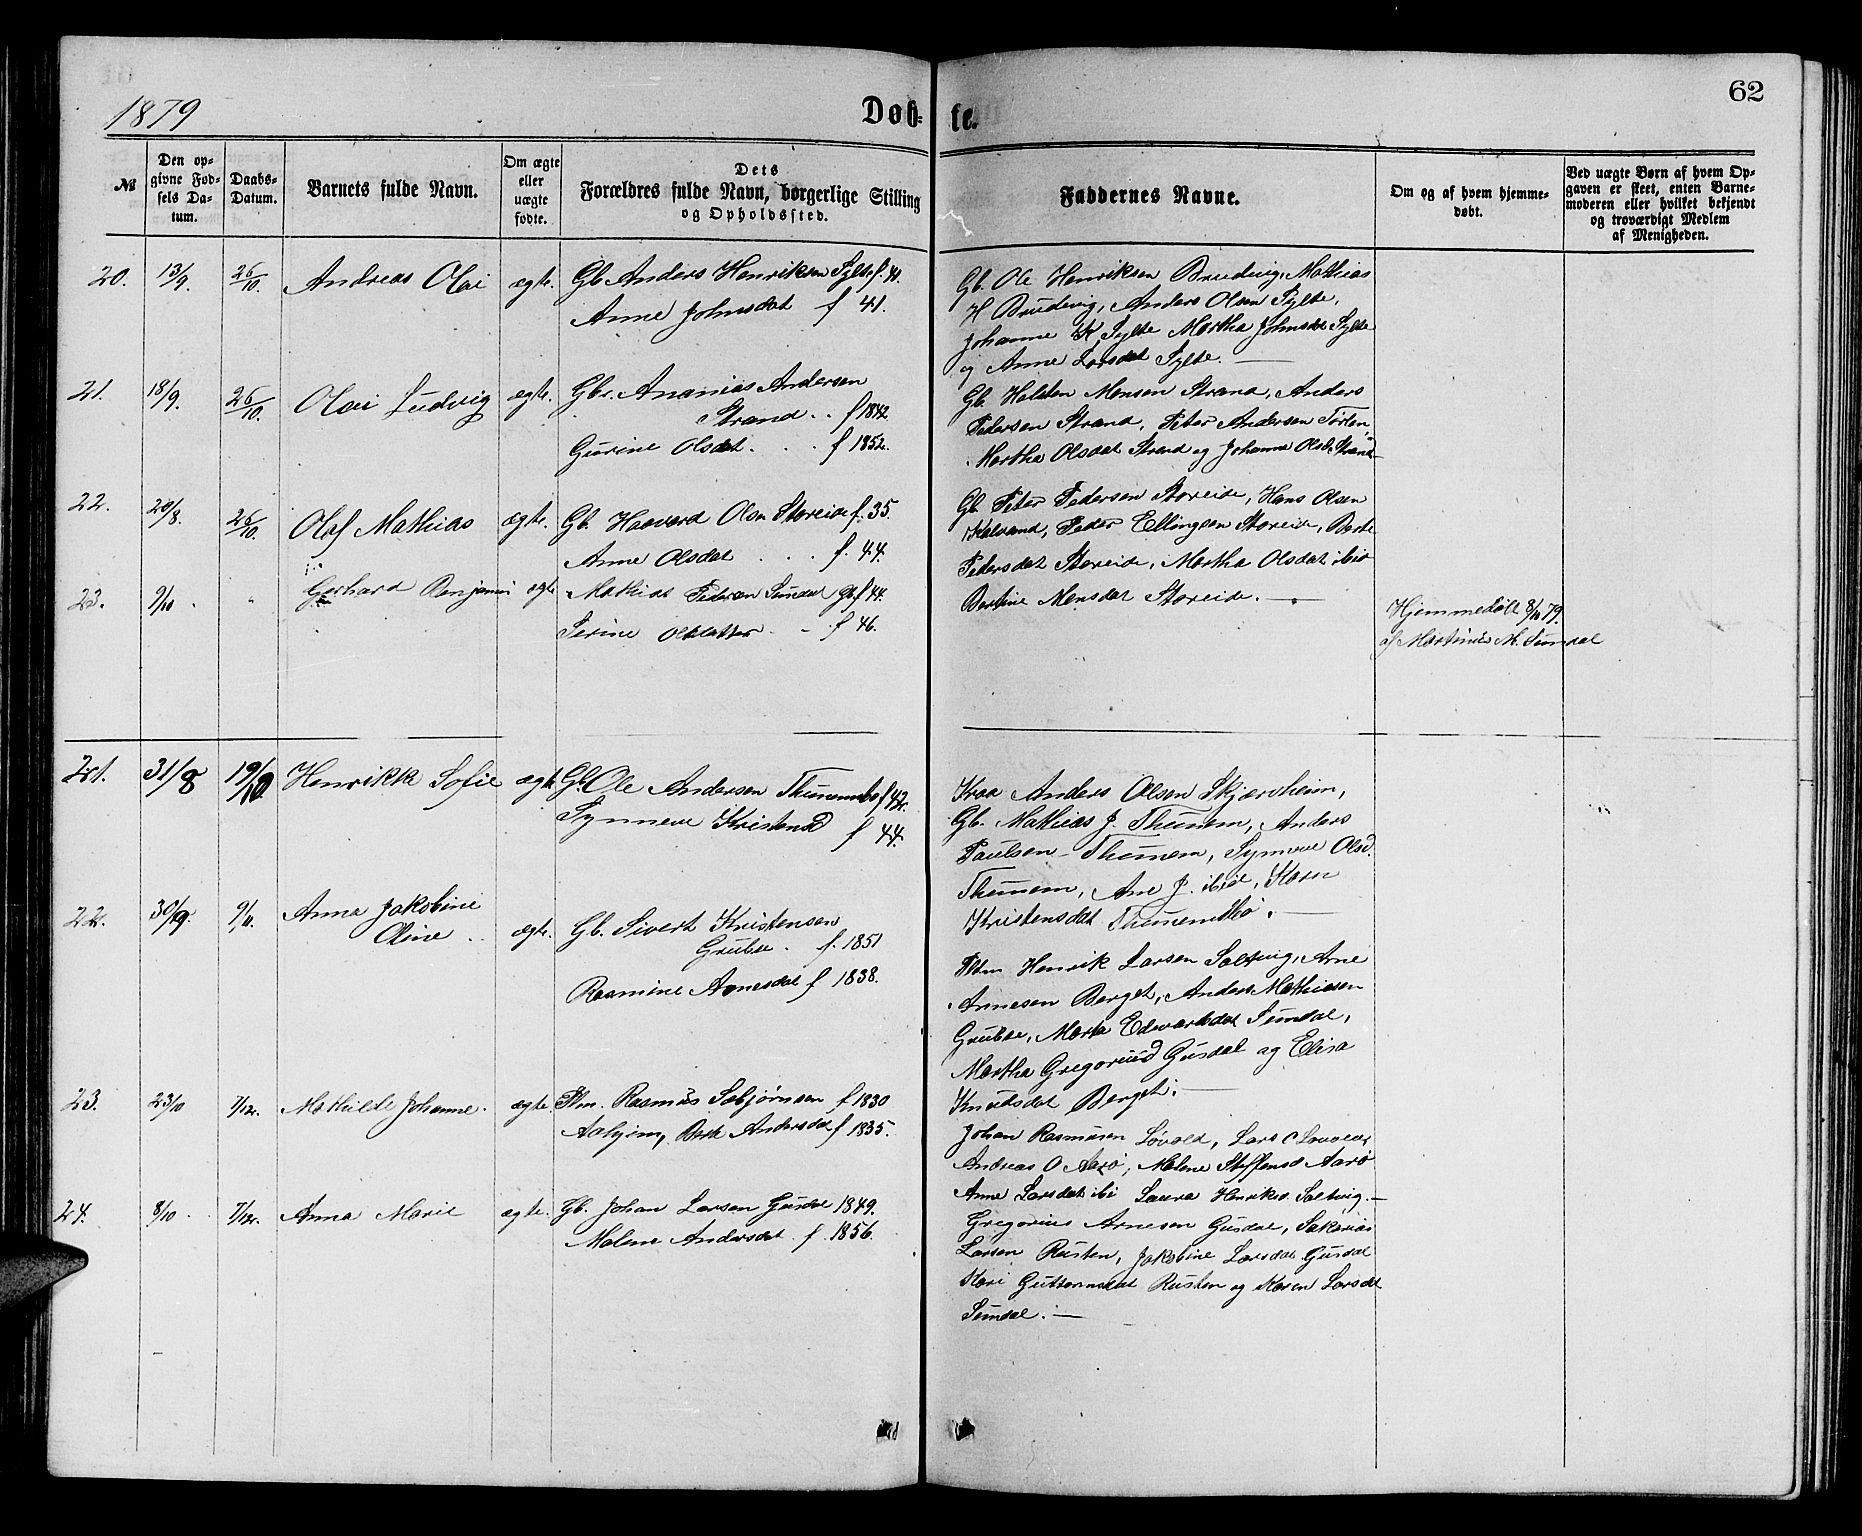 1879
Døbte.
62
№
Den opgivne Fødsels Datum.
Daabs-Datum.
Barnets fulde Navn.
Om ægte eller uægte fødte.
Dets Forældres fulde Navn, borgerlige Stilling og Opholdssted.
Faddernes Navne.
Om og af hvem hjemmedøbt.
Ved uægte Børn af hvem Opgaven er skeet, enten Barnemoderen eller hvilket bekjendt og troværdigt Medlem af Menigheden.
20. 13/9. 26/10. Andreas Olai ægte. Gb Anders Henriksen Sylte f. 41.
Anne Johnsdat f 41.
Gb. Ole Henriksen Brudvig, Mathias
H Brudevig, Anders Olsen Sylte,
Johanne K Sylte Martha Johnsdat Sylte
og Anne Larsdat Sylte. —
21. 18/9. 26/10. Olai Ludvig ægte. Gbr. Ananias Andersen
Strand . . f 1842.
Gurine Olsdat . . . f 1852.
Gb. Halsten Monsen Strand, Anders
Pedersen Strand, Peter Andersen
Martha Olsdat Strand og Johanne Olsd. Strand
22. 20/8. 26/10. Olaf Mathias ægte. Gb. Haavard Olsn Storeide f. 35.
Anne Olsdat . . . f. 44.
Gb Peter Pedersen Storeide, Hans Olsen
Kalvand, Peder Ellingsen Storeide, Berte
Pedersdat Storeide, Martha Olsdat ibid
Bertine Monsdat Storeide. —
23. 9/10 . " Gerhard Benjamin ægte Mathias Pedersen Sundal Gb f 44.
Serine Olsdatter - f 46.
Hjemmedøbt 8/11 79.
af Martinus M. Sundal
21. 31/8 19/10 Henrikke Sofie ægte Gb. Ole Andersen Thunemsbø f 42.
Synneve Kristensd f 44.
Kraa Anders Olsen Skjærvheim,
Gb. Mathias J. Thunem, Anders
Paulsen Thunem, Synneve Olsd.
Thunem, Ane J. ibid, Karen
Kristensdat Thunemsbø. —
22. 30/9. 9/11. Anna Jakobine
Oline . . ægte. Gb. Sivert Kristensen
Grubse . f. 1851
Rasmine Arnesdat f 1838.
Pltm Henrik Larsen Saltvig, Arne
Arnesen Berget, Anders Mathiasen
Grubse, Marta Edvardsdat Sundal,
Martha Gregoriusd Gusdal og Elisa
Knudsdat Berget. —
23. 23/10 7/12. Mathilde Johanne. ægte. Plm. Rasmus Sebjørnsen f 1830
Berte Andersdat f 1835.
Johan Rasmusen Løvold, Lars C Løvold,
Andreas O Aarø, Malene Steffensd Aarø
Anne Larsdat ibi Laura Henriksd. Saltvig. —
24. 8/10 . . 7/12. Anna Marie ægte. Gb. Johan Larsen Gusdal 1849.
Malene Andersdat f. 1856.
Gregorius Arnesen Gusdal, Sakarias
Larsen Rusten, Jakobine Larsdat Gusdal
Kari Guttormsdat Rusten og Karen Larsdat
Sundal. —